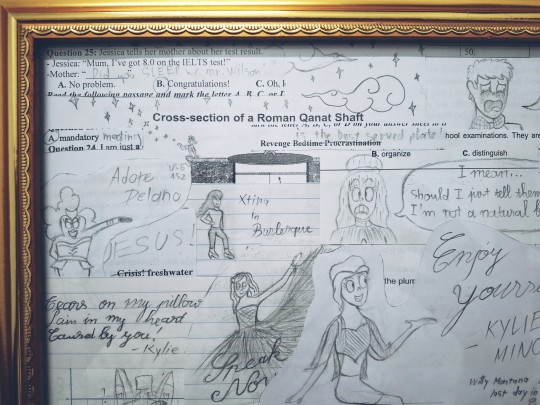 Question 25: Jessica tells her mother about her test result.
50.
- Jessica: "Mum, I've got 8.0 on the IELTS test!"
-Mother: " Did you SLEEP w/ mr. Wilson
A. No problem. B. Congratulations! C. Oh, I
Read the following passage and mark the letter A, B, C, or D
Cross-section of a Roman Qanat Shaft
A. mandatory meeting
is the best served plate!
hool examinations. They are
Question 24. I am just a
Revenge Bedtime Procrastination
B. organize C. distinguish
Adore
Delano
Xtina
in
Burlesque
I mean...
Should I just tell them
I'm not a natural b
JESUS!
Crisis! freshwater
the plum
Enjoy
Yourse
- KYLIE
MINO
Tears on my pillow
Pain in my heart
Caused by you!
- Kylie
Speak
Now
Witty Montana
last day in